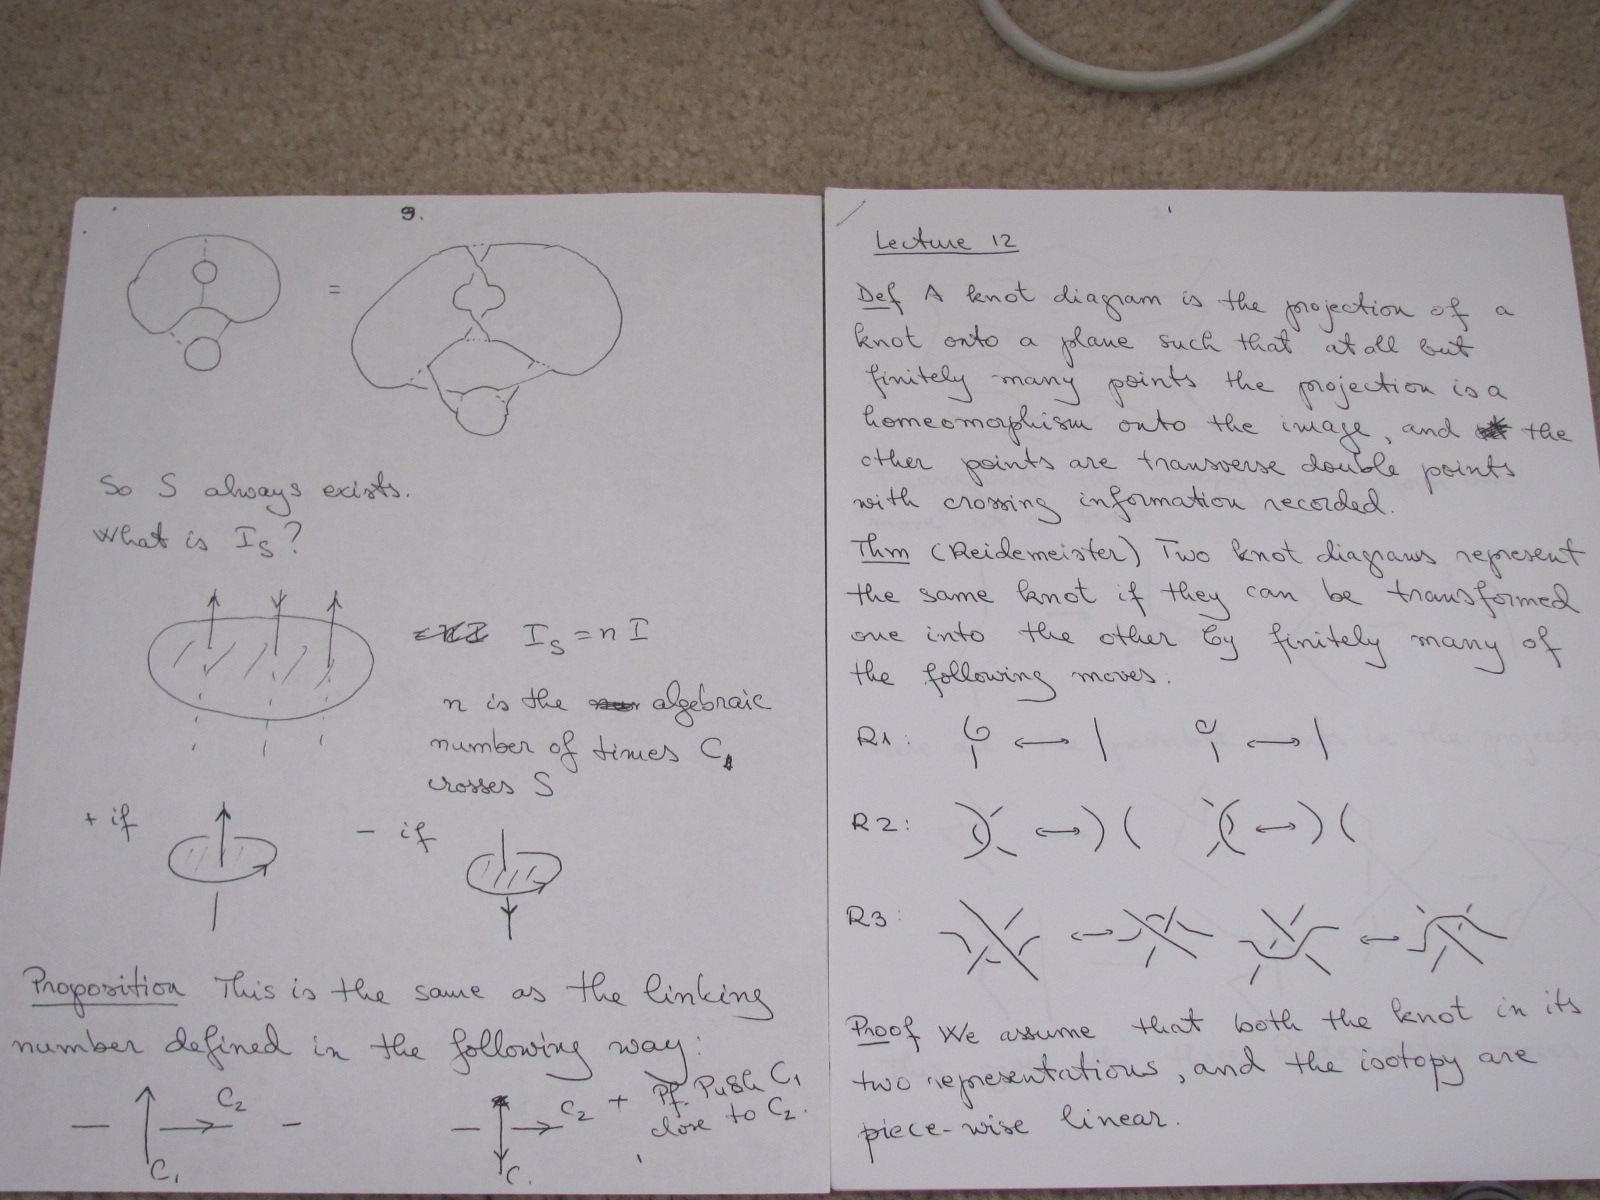 9.
=
So S always exists.
What is I_S?
I_S = n I
n is the algebraic
number of times C_1
crosses S
+ if
- if
Proposition This is the same as the linking
number defined in the following way:
C_2 -
C_1
C_2 +
C_1
Pf. Push C_1
close to C_2.
Lecture 12
Def A knot diagram is the projection of a
knot onto a plane such that at all but
finitely many points the projection is a
homeomorphism onto the image, and the
other points are transverse double points
with crossing information recorded.
Thm (Reidemeister) Two knot diagrams represent
the same knot if they can be transformed
one into the other by finitely many of
the following moves:
R1:
R2:
R3:
Proof We assume that both the knot in its
two representations, and the isotopy are
piece-wise linear.